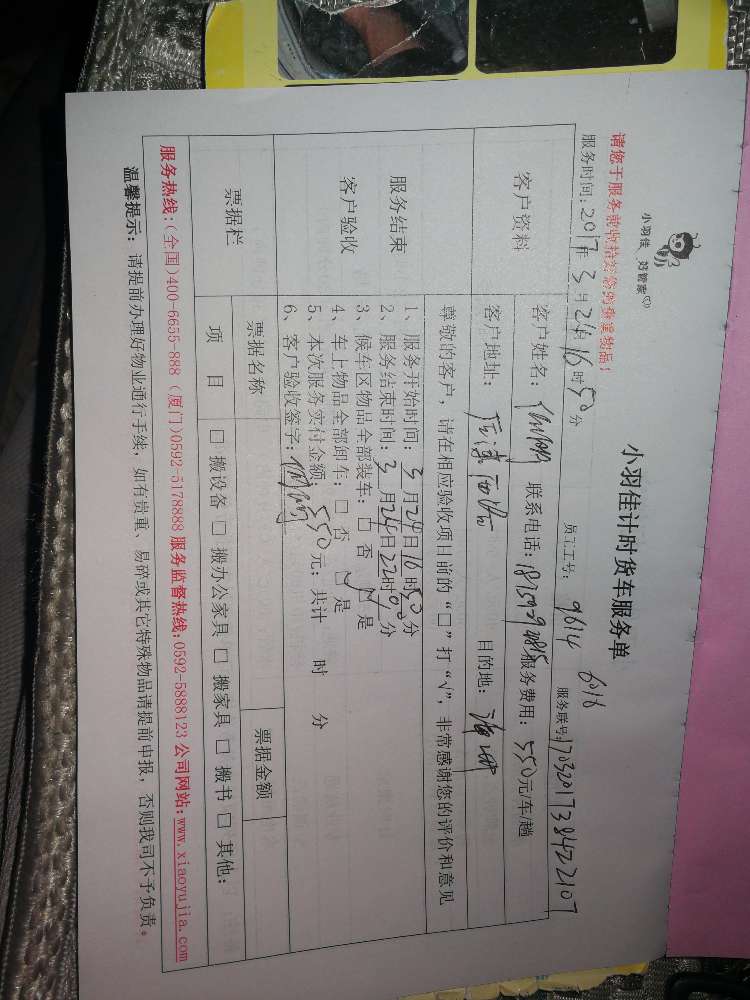 小羽佳 好管家
小羽佳计时货车服务单
请您于服务前收拾好您的贵重物品!
服务时间:2017年3月24日16时50分 员工工号: 9614 6016 服务联号:
客户资料
客户姓名: 联系电话: 服务费用:550元/车/趟
客户地址: 目的地:
服务结束
客户验收
尊敬的客户,请在相应验收项目前的“□”打“√”,非常感谢您的评价和意见
1、服务开始时间:3月24日16时50分
2、服务结束时间:3月24日22时0分
3、候车区物品全部装车:□ 否 ☑ 是
4、车上物品全部卸车:□ 否 ☑ 是
5、本次服务实付金额:550元;共计 时 分
6、客户验收签字:
票据栏
票据名称 票据金额
项 目 □ 搬设备 □ 搬办公家具 □ 搬家具 □ 搬书 □ 其他:
服务热线:(全国)400-6655-888 (厦门)0592-5178888 服务监督热线:0592-5888123 公司网站:www.xiaoyujia.com
温馨提示: 请提前办理好物业通行手续,如有贵重、易碎或其它特殊物品请提前申报,否则我司不予负责。